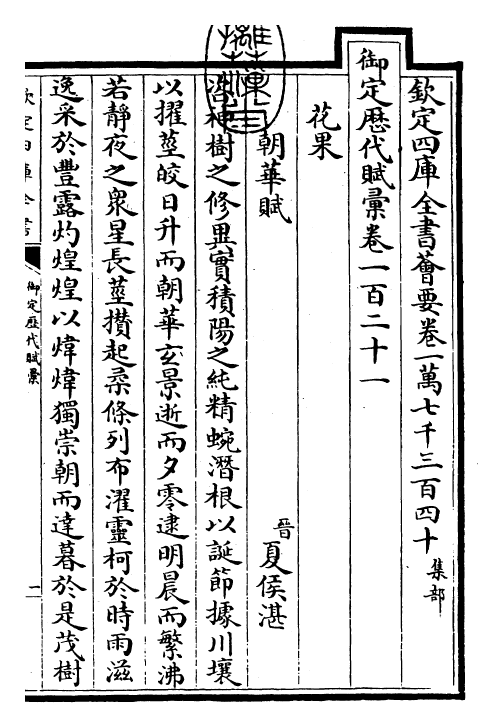 欽定四庫全書薈要卷一萬七千三百四十 集部
御定歷代賦彙卷一百二十一
花果
朝華賦 晉夏侯湛
神樹之修異實積陽之純精蜿潛根以誕節據川壤
以擢莖皎日升而朝華玄景逝而夕零逮明晨而繁沸
若靜夜之衆星長莖攢起柔條列布濯靈柯於時雨滋
逸采於豐露灼煌煌以煒煒獨崇朝而達暮於是茂樹
欽定四庫全書
御定歷代賦彙
一